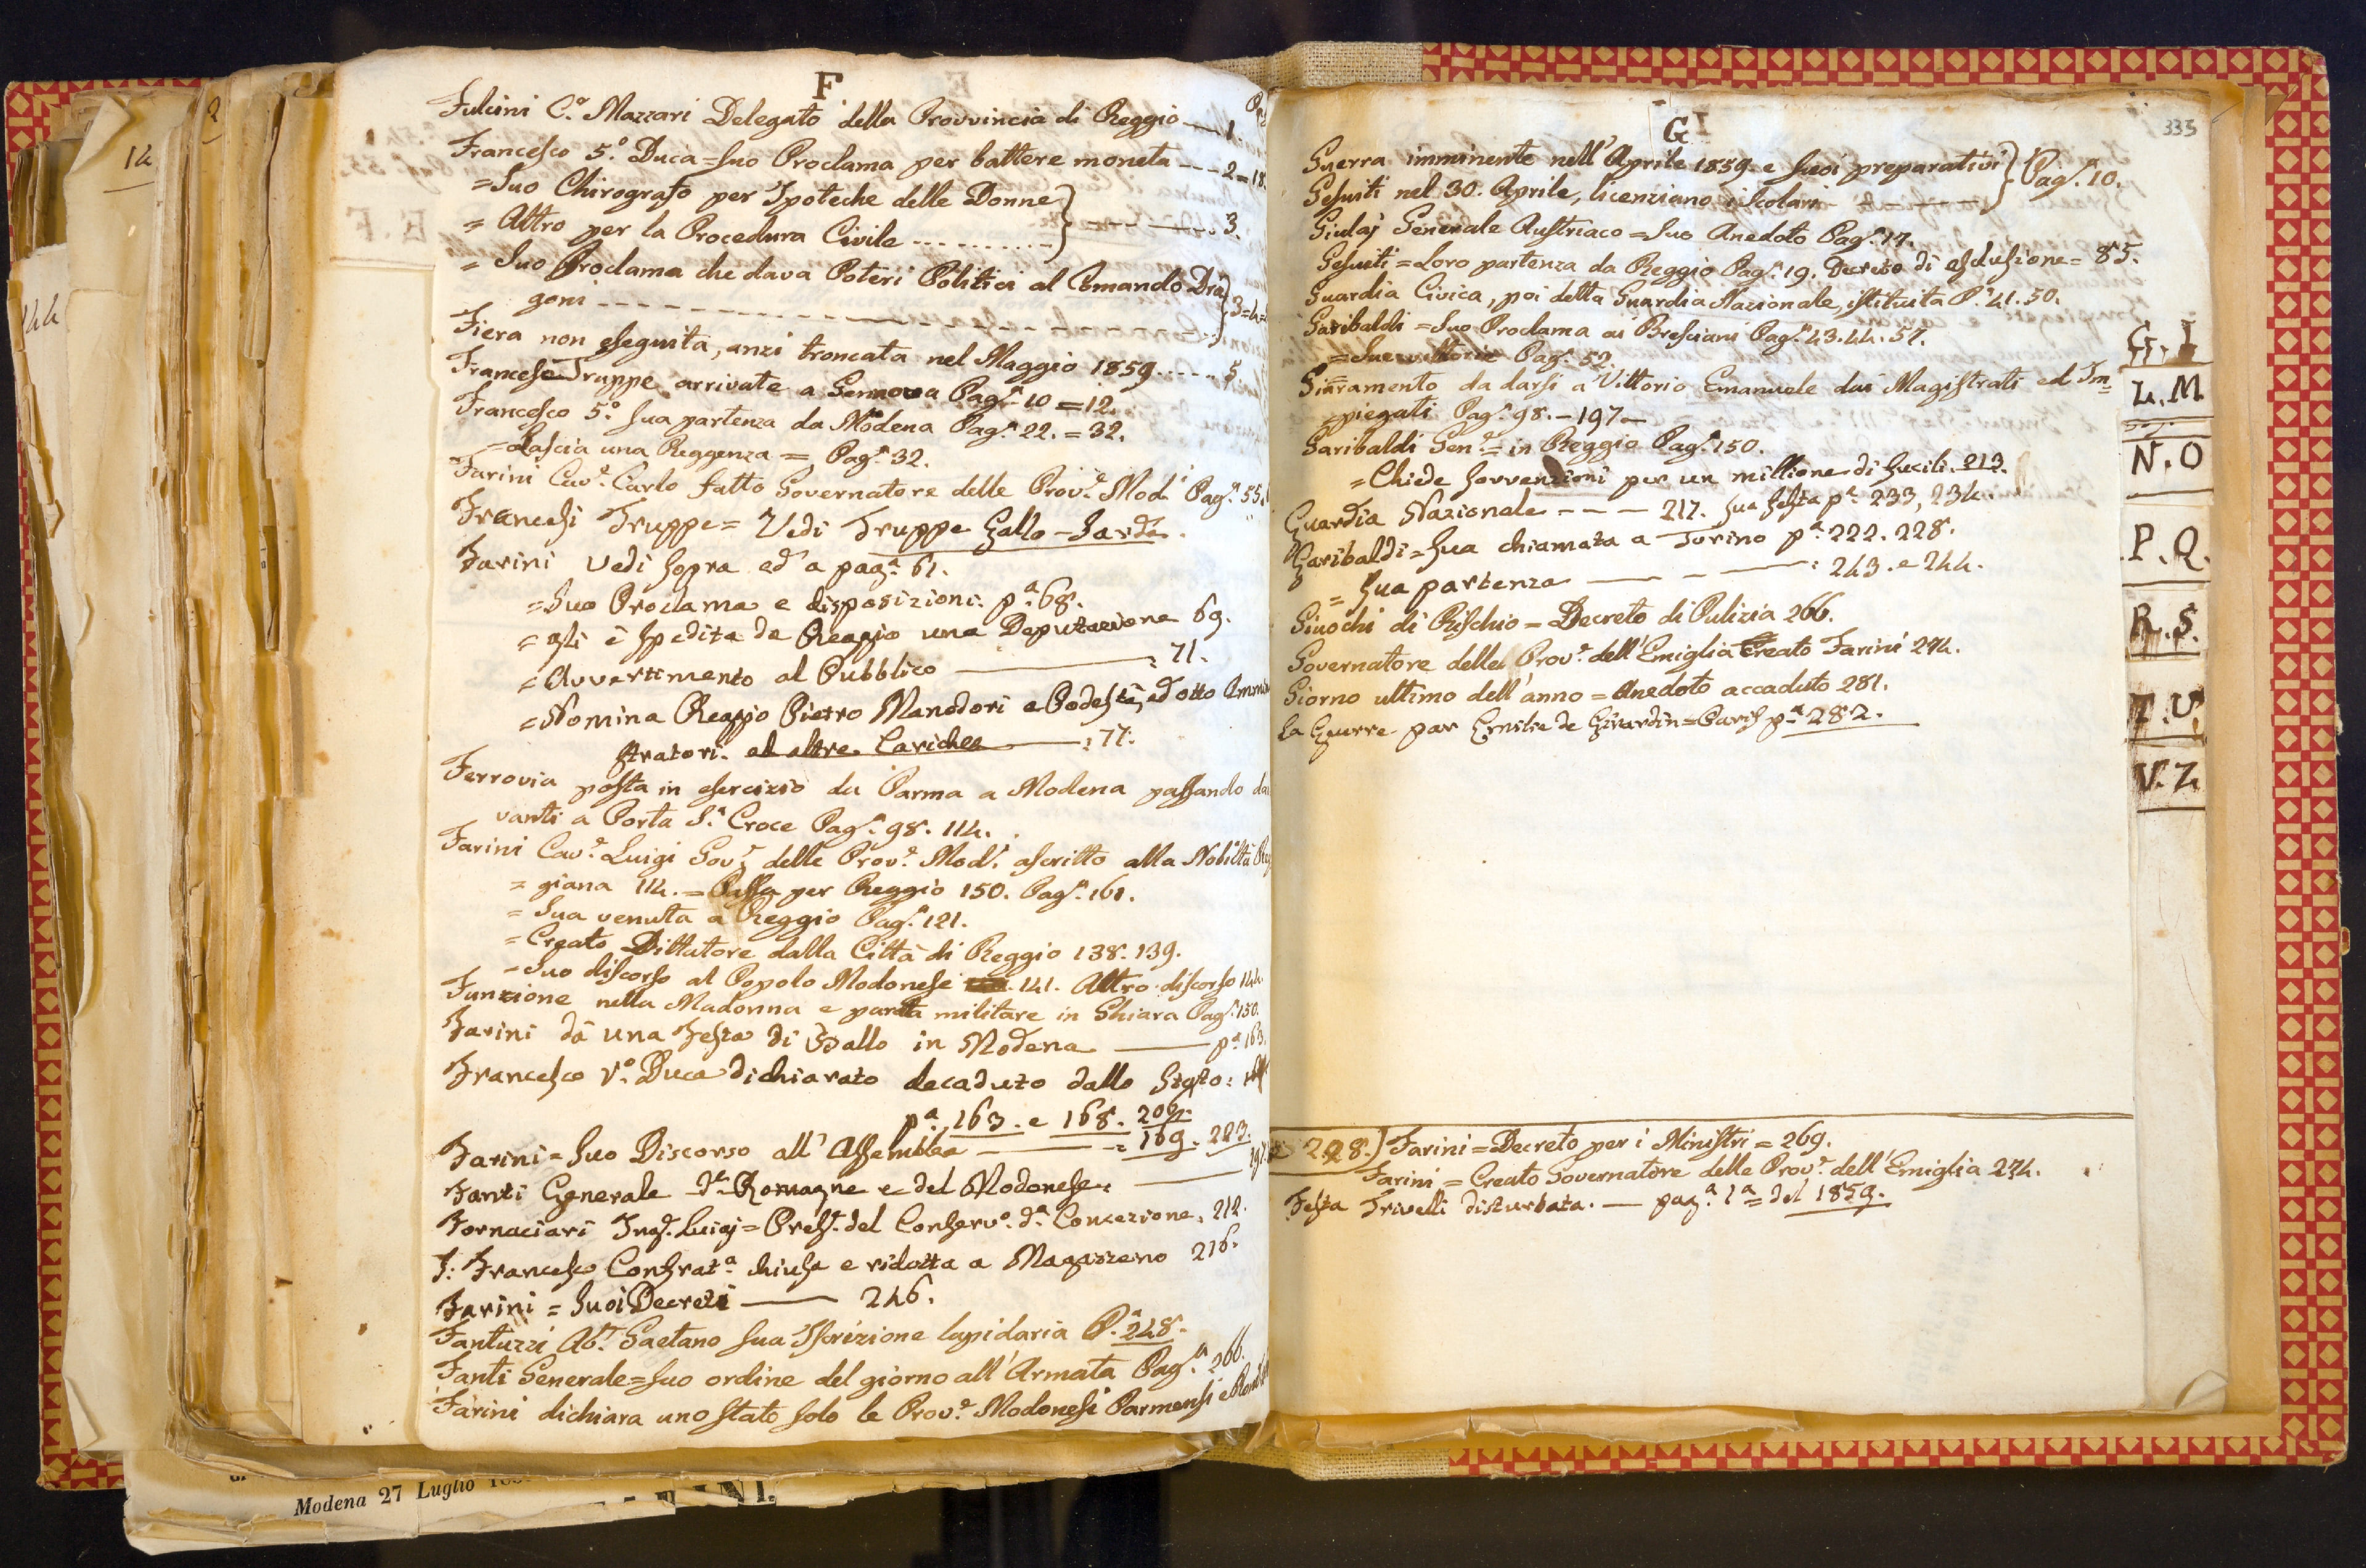 14
144
2
F
Fulcini C.º Mazzari Delegato della Provvincia di Reggio — 1.
Francesco 5.º Duca = suo Proclama per battere moneta --- 2=18
= Suo Chirografo per Ipoteche delle Donne
= Altro per la Procedura Civile ---------- } ---- 3.
= Suo Proclama che dava Poteri Politici al Comando Dra
goni ------------------ } 3=4=
Fiera non eseguita, anzi troncata nel Maggio 1859 ---- 5
Francese Truppe arrivate a Gennova Pag.ª 10 = 12.
Francesco 5.º sua partenza da Modena Pag.ª 22. = 32.
= Lascia una Reggenza = Pag.ª 32.
Farini Cav.e Carlo fatto Governatore delle Prov.e Mod.i Pag.ª 55.
Francesi Truppe = Vedi Truppe Gallo - Sarde.
Farini Vedi sopra ed a pag.ª 61.
= Suo Proclama e disposizioni: p.ª 68.
= Gli è spedita da Reggio una Deputazione 69.
= Avvertimento al Pubblico ——— : 71.
= Nomina Reggio Pietro Manodori a Podestà, ed otto Ammini
stratori. ed altre Cariche ——— : 77.
Ferrovia posta in esercizio da Parma a Modena passando da
vanti a Porta S.ª Croce Pag.ª 98. 114.
Farini Cav.e Luigi Gov.e delle Prov.e Mod.i ascritto alla Nobiltà Reg
= giana 114. = Passa per Reggio 150. Pag.ª 161.
= Sua venuta a Reggio Pag.ª 121.
= Creato Dittatore dalla Città di Reggio 138. 139.
= Suo discorso al Popolo Modonese 141. Altro discorso 144.
Funzione nella Madonna e parata militare in Ghiara Pag.ª 150.
Farini dà una Festa di Ballo in Modena —— p.ª 163.
Francesco V.º Duca dichiarato decaduto dallo Stato:
p.ª 163. e 168. 206.
Farini = Suo Discorso all'Assemblea ——— : 169. 223.
Fanti Generale d.le Romagne e del Modonese: —— 197.
Fornaciari Ing.e Luigi = Pres.e del Conserv.o d.ª Concezione, 212.
S: Francesco Confrat.ª chiusa e ridotta a Magazzeno 216.
Farini = Suoi Decreti —— 246.
Fantuzzi Ab.e Gaetano sua Iscrizione lapidaria P.ª 248.
Fanti Generale = suo ordine del giorno all'Armata Pag.ª 266.
Farini dichiara uno Stato solo le Prov.e Modonesi Parmensi e
Modena 27 Luglio
335
G I
Guerra imminente nell'Aprile 1859. e suoi preparativi
Gesuiti nel 30. Aprile, licenziano i scolari ------ } Pag.ª 10.
Giulaj Generale Austriaco = suo Anedoto Pag.ª 17.
Gesuiti = Loro partenza da Reggio Pag.ª 19. Decreto di esclusione = 85.
Guardia Civica, poi detta Guardia Nazionale, istituita P.ª 41. 50.
Garibaldi = Suo Proclama ai Bresciani Pag.ª 43. 44. 57.
= Sue vittorie Pag.ª 52.
Giuramento da darsi a Vittorio Emanuele dai Magistrati ed Im=
= piegati Pag.ª 98. - 197 -
Garibaldi Gen.e = in Reggio Pag.ª 150.
= Chiede sovvenzioni per un millione di fucili. 213.
Guardia Nazionale --- 217. sua festa p.ª 233, 234.
Garibaldi = Sua chiamata a Torino p.ª 222. 228.
= Sua partenza —— - —— : 243. e 244.
Giuochi di Rischio = Decreto di Pulizia 266.
Governatore delle Prov.e dell'Emiglia Creato Farini 274.
Giorno ultimo dell'anno = Anedoto accaduto 281.
La Guerre par Emilie de Girardin = Paris p.ª 282.
228.) Farini = Decreto per i Ministri = 269.
Farini = Creato Governatore delle Prov.e dell'Emiglia 274.
Festa Trivelli disturbata. — pag.ª 1.ª del 1859.
G. I
L. M
N. O
P. Q.
R. S.
T. U.
V. Z